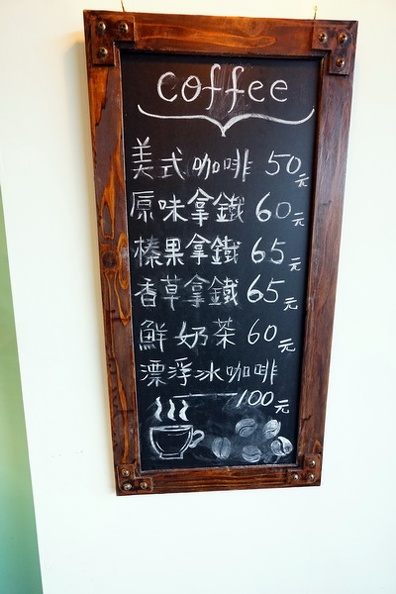 coffee
美式咖啡 50元
原味拿鐵 60元
榛果拿鐵 65元
香草拿鐵 65元
鮮奶茶 60元
漂浮冰咖啡
100元